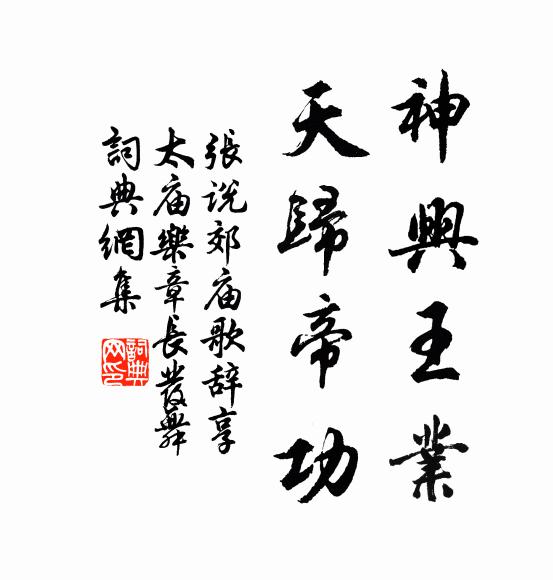 神興王業
天歸帝功
張说郊庙歌辞享
太庙樂章長發舞
詞典網集
詞典
网印